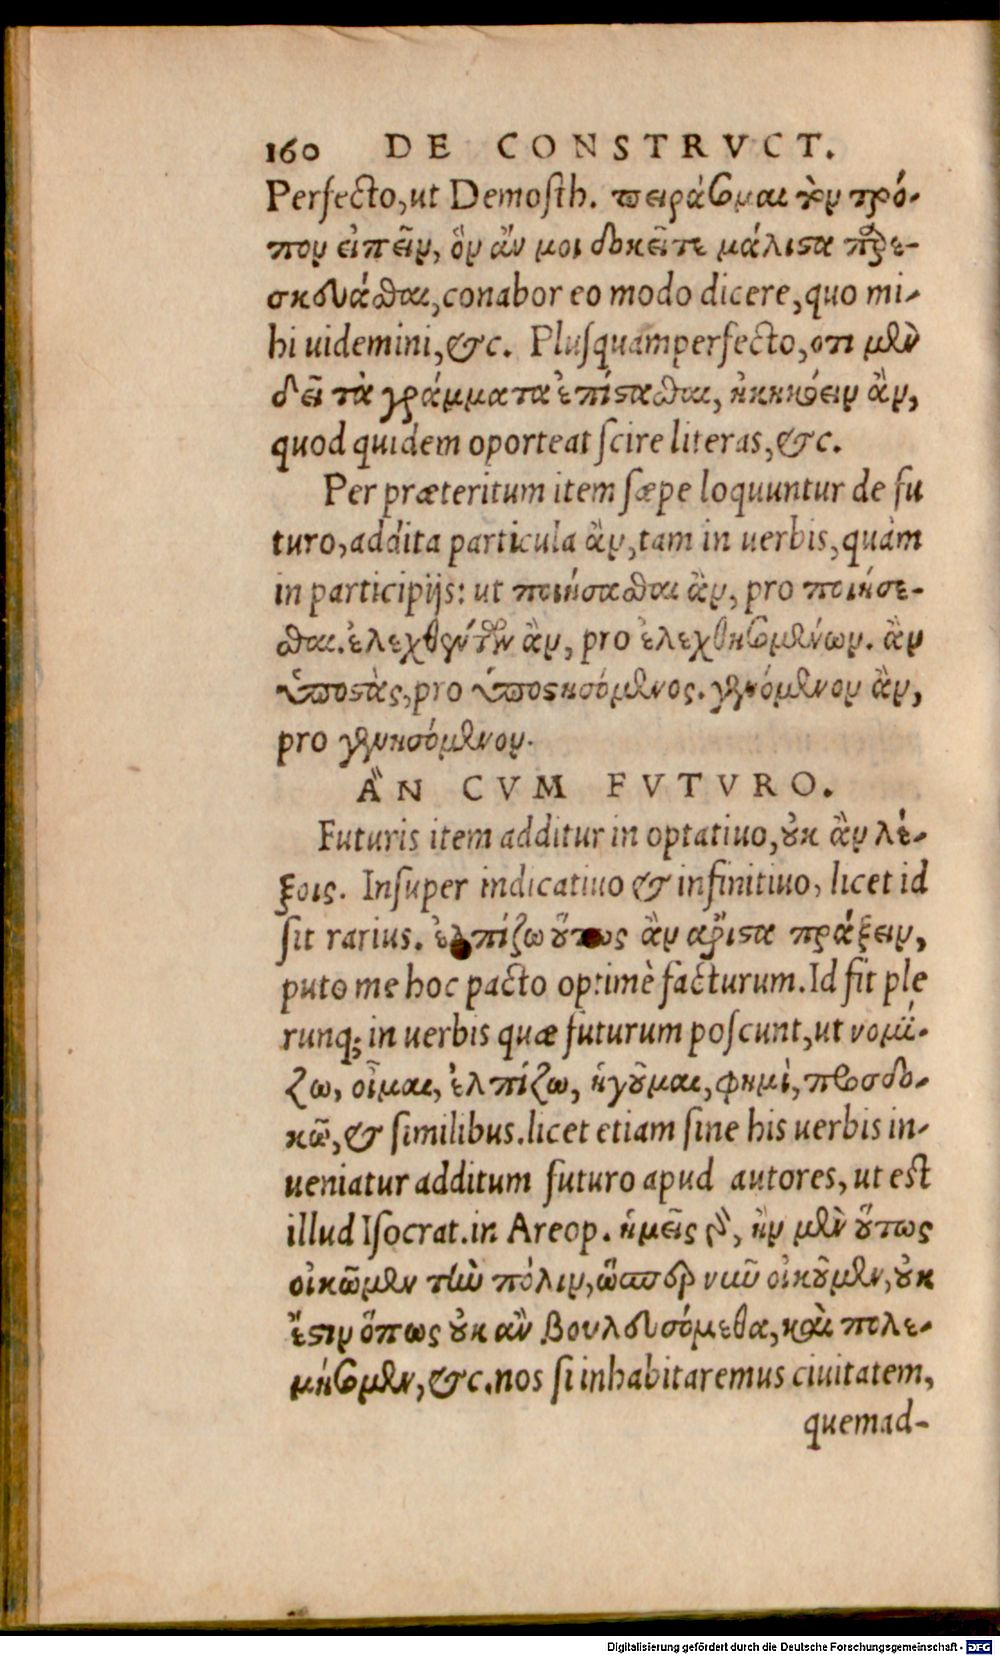 160 DE CONSTRVCT.
Perfecto, ut Demosth. πειράσομαι τὸν τρό-
πον εἰπεῖν, ὃν ἄν μοι δοκεῖτε μάλιστα παρε-
σκευάσθαι, conabor eo modo dicere, quo mi-
hi uidemini, &c. Plusquamperfecto, οτι μὲν
δεῖ τὰ γράμματα ἐπίστασθαι, ἠκηκόειν ἂν,
quod quidem oporteat scire literas, &c.
Per præteritum item sæpe loquuntur de fu
turo, addita particula ἂν, tam in uerbis, quàm
in participijs: ut ποιήσασθαι ἂν, pro ποιήσε-
σθαι. ἐλεχθέντων ἂν, pro ἐλεχθησομένων. ἂν
ὑποστὰς, pro ὑποστησόμενος. γενόμενον ἂν,
pro γενησόμενον.
ἂN CVM FVTVRO.
Futuris item additur in optatiuo, οὐκ ἂν λέ-
ξοις. Insuper indicatiuo & infinitiuo, licet id
sit rarius. ἐλπίζω οὕτως ἂν αριστα πράξειν,
puto me hoc pacto optimè facturum. Id fit ple
runq; in uerbis quæ futurum poscunt, ut νομί-
ζω, οἶμαι, ἐλπίζω, ἡγοῦμαι, φημὶ, προσδο-
κῶ, & similibus. licet etiam sine his uerbis in-
ueniatur additum futuro apud autores, ut est
illud Isocrat. in Areop. ἡμεῖς δὲ, ἢν μὲν οὕτως
οἰκῶμεν τὴν πόλιν, ὥσπερ νῦν οἰκοῦμεν, οὐκ
ἔστιν ὅπως οὐκ ἂν βουλευσόμεθα, καὶ πολε-
μήσομεν, &c. nos si inhabitaremus ciuitatem,
quemad-
Digitalisierung gefördert durch die Deutsche Forschungsgemeinschaft - DFG